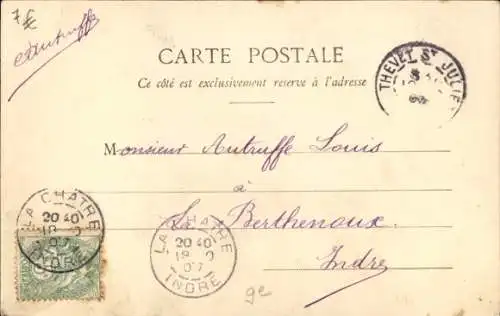 7 €
Autruffe
CARTE POSTALE
Ce côté est exclusivement reserve à l'adresse
THEVET ST JULIEN
Monsieur Autruffe Louis
à
La Berthenoux
Indre
LA CHATRE
20 40
18
07
INDRE
LA CHATRE
20 40
18
07
INDRE
ge